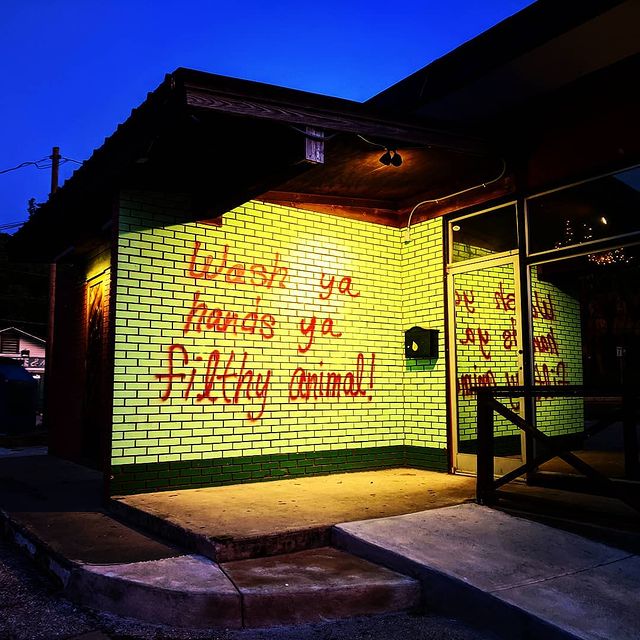 Wash ya
hands ya
filthy animal!